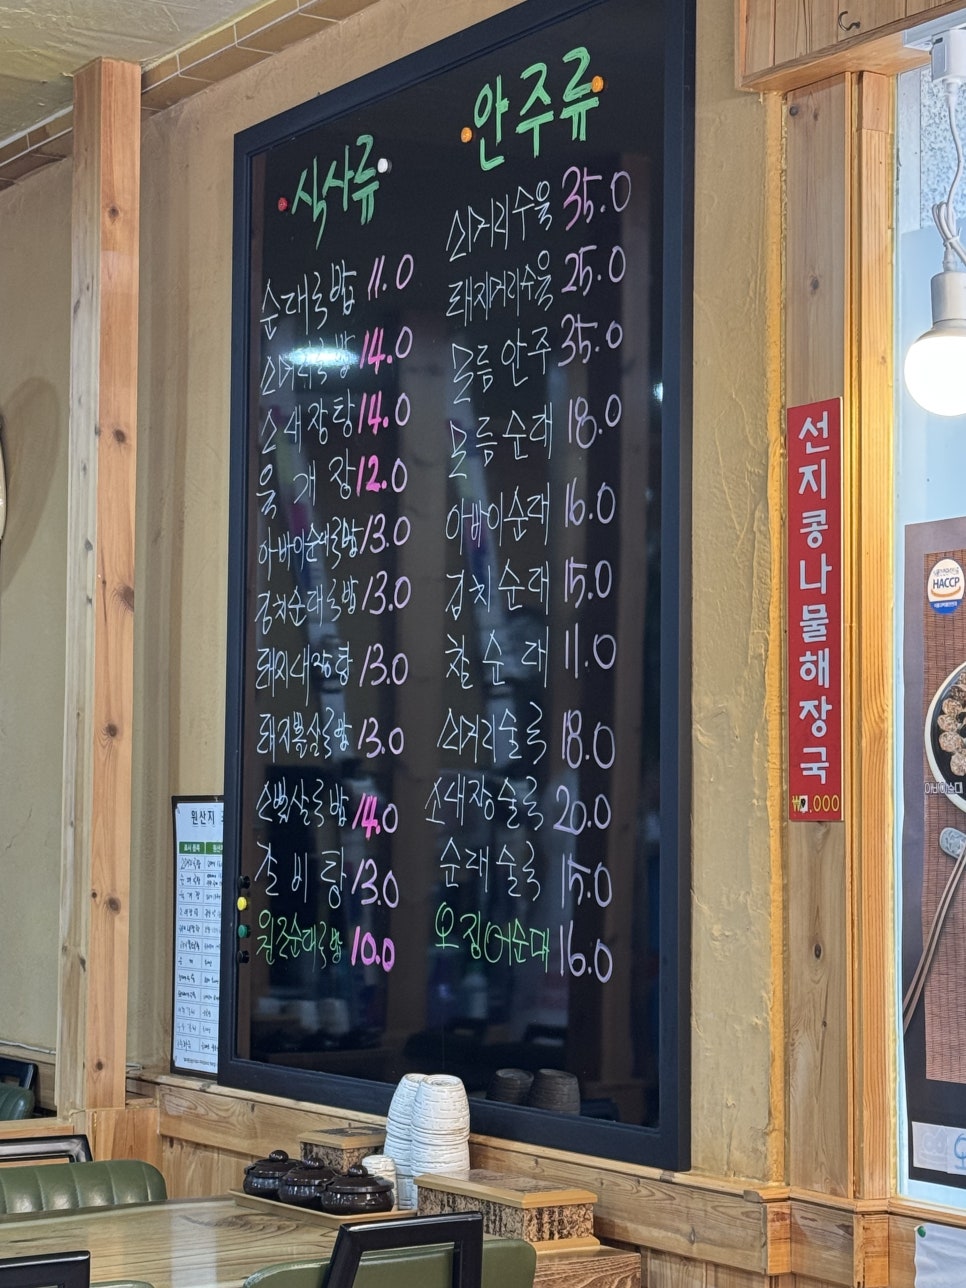 식사류
순대국밥 11.0
소머리국밥 14.0
소내장탕 14.0
육개장 12.0
아바이순대국밥 13.0
김치순대국밥 13.0
돼지내장탕 13.0
돼지뽈살국밥 13.0
소뽈살국밥 14.0
갈비탕 13.0
원조순대국밥 10.0
안주류
소머리수육 35.0
돼지머리수육 25.0
모름안주 35.0
모름순대 18.0
아바이순대 16.0
김치순대 15.0
찰순대 11.0
소머리술국 18.0
소내장술국 20.0
순대술국 15.0
오징어순대 16.0
선지콩나물해장국
₩9,000
원산지
HACCP
아바이순대